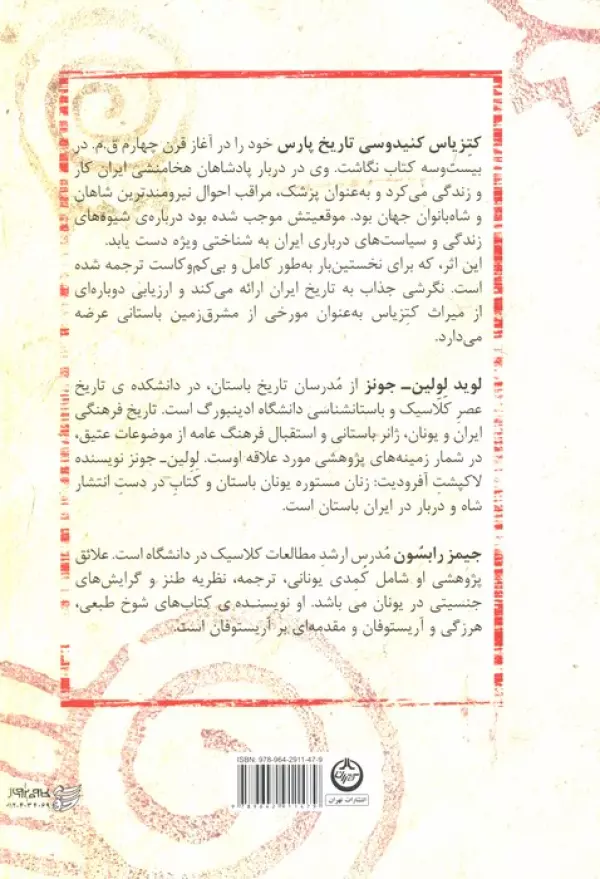 کتِزیاس کنیدوسی تاریخ پارس خود را در آغاز قرن چهارم ق.م. در
بیست‌وسه کتاب نگاشت. وی در دربار پادشاهان هخامنشی ایران کار
و زندگی می‌کرد و به‌عنوان پزشک، مراقب احوال نیرومندترین شاهان
و شاه‌بانوان جهان بود. موقعیتش موجب شده بود درباره‌ی شیوه‌های
زندگی و سیاست‌های درباری ایران به شناختی ویژه دست یابد.
این اثر، که برای نخستین‌بار به‌طور کامل و بی‌کم‌وکاست ترجمه شده
است. نگرشی جذاب به تاریخ ایران ارائه می‌کند و ارزیابی دوباره‌ای
از میراث کتِزیاس به‌عنوان مورخی از مشرق‌زمین باستانی عرضه
می‌دارد.
لوید لِولین- جونز از مُدرسان تاریخ باستان، در دانشکده ی تاریخ
عصرِ کلاسیک و باستانشناسی دانشگاه ادینبورگ است. تاریخ فرهنگی
ایران و یونان، ژانر باستانی و استقبال فرهنگ عامه از موضوعات عتیق،
در شمار زمینه‌های پژوهشی مورد علاقه اوست. لِولین- جونز نویسنده
لاکپشتِ آفرودیت: زنان مستوره یونان باستان و کتابِ در دستِ انتشار
شاه و دربار در ایران باستان است.
جیمز رابسُون مُدرسِ ارشدِ مطالعات کلاسیک در دانشگاه است. علائق
پژوهشی او شامل کُمِدی یونانی، ترجمه، نظریه طنز و گرایش‌های
جنسیتی در یونان می باشد. او نویسنده ی کتاب‌های شوخ طبعی،
هرزگی و آریستوفان و مقدمه‌ای بر آریستوفان است.
ISBN: 978-964-2911-47-9
9789642911479
انتشارات تهران